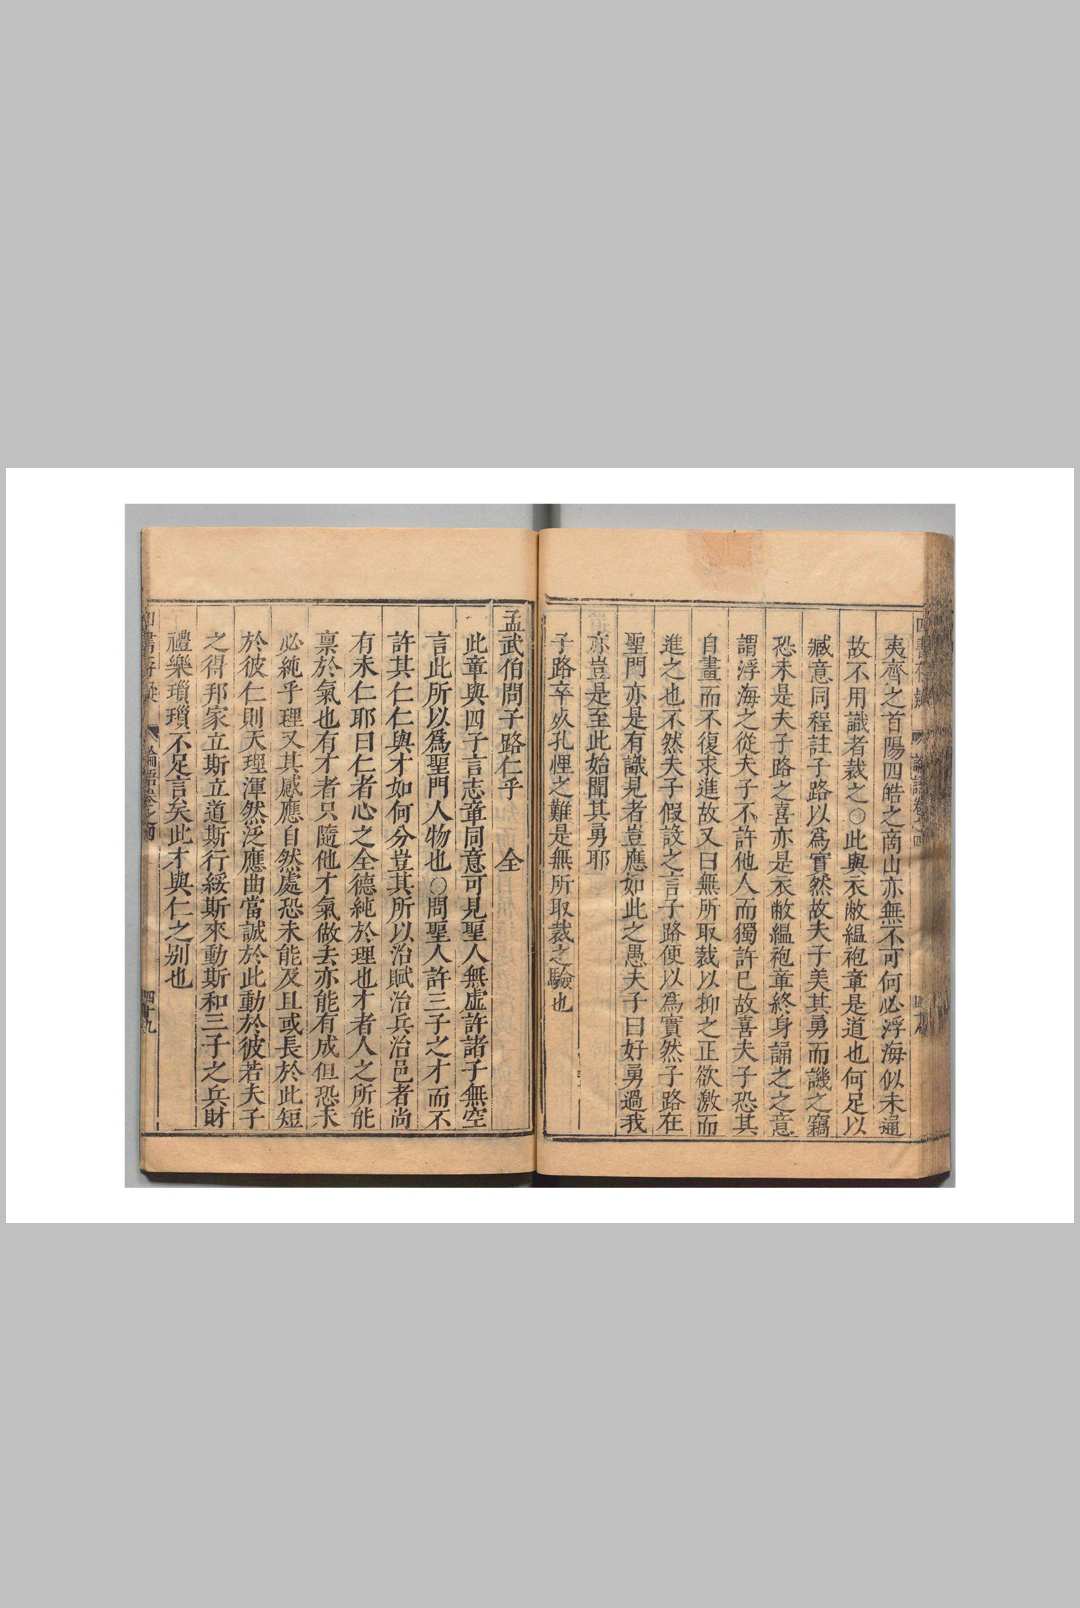 夷齊之首陽四皓之南山亦無不可何必浮海似未通
故不用識者裁之○此與衣敝緼袍章是道也何足以
臧意同程註子路以爲實然故夫子美其勇而譏之竊
恐未是夫子路之喜亦是衣敝緼袍章終身誦之之意
謂浮海之從夫子不許他人而獨許己故喜夫子恐其
自畫而不復求進故又曰無所取裁以抑之正欲激而
進之也不然夫子假設之言子路便以爲實然子路在
聖門亦是有識見者豈應如此之愚夫子曰好勇過我
亦豈是至此始聞其勇耶
子路卒於孔悝之難是無所取裁之驗也
孟武伯問子路仁乎 全
此章與四子言志章同意可見聖人無虛許諸子無空
言此所以爲聖門人物也○問聖人許三子之才而不
許其仁仁與才如何分豈其所以治賦治兵治邑者尚
有未仁耶曰仁者心之全德純於理也才者人之所能
稟於氣也有才者只隨他才氣做去亦能有成但恐未
必純乎理又其感應自然處恐未能及且或長於此短
於彼仁則天理渾然泛應曲當誠於此動於彼若夫子
之得邦家立斯立道斯行綏斯來動斯和三子之兵財
禮樂瑣瑣不足言矣此才與仁之別也
論語卷之四
四十九